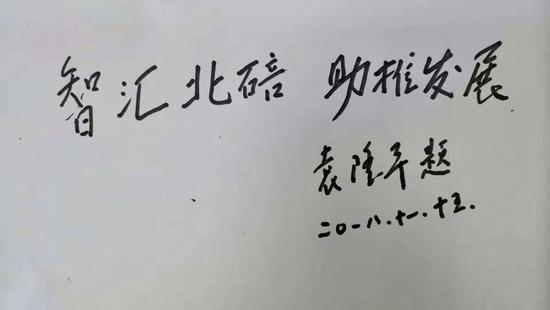 智汇北碚 助推发展
袁隆平题
二〇一八.十一.十五.